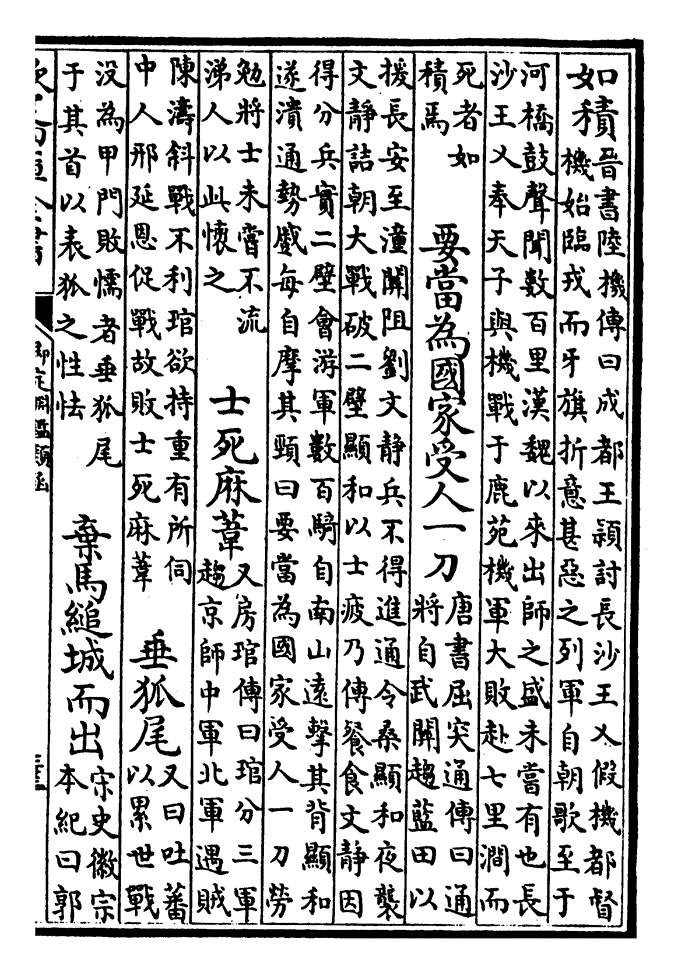 如積晉書陸機傳曰成都王穎討長沙王乂假機都督
機始臨戎而牙旗折意甚惡之列軍自朝歌至于
河橋鼓聲聞數百里漢魏以來出師之盛未嘗有也長
沙王乂奉天子與機戰于鹿苑機軍大敗赴七里澗而
死者如
積焉
要當為國家受人一刀唐書屈突通傳曰通
將自武關趨藍田以
援長安至潼關阻劉文靜兵不得進通令桑顯和夜襲
文靜詰朝大戰破二壁顯和以士疲乃傳餐食文靜因
得分兵實二壁會游軍數百騎自南山遠擊其背顯和
遂潰通勢蹙每自摩其頸曰要當為國家受人一刀勞
勉將士未嘗不流
涕人以此懷之
士死麻葦又房琯傳曰琯分三軍
趨京師中軍北軍遇賊
陳濤斜戰不利琯欲持重有所伺
中人邢延恩促戰故敗士死麻葦
垂狐尾又曰吐蕃
以累世戰
没為甲門敗懦者垂狐尾
于其首以表狐之性怯
棄馬縋城而出宋史徽宗
本紀曰郭
欽定四庫全書
御定淵鑑類函